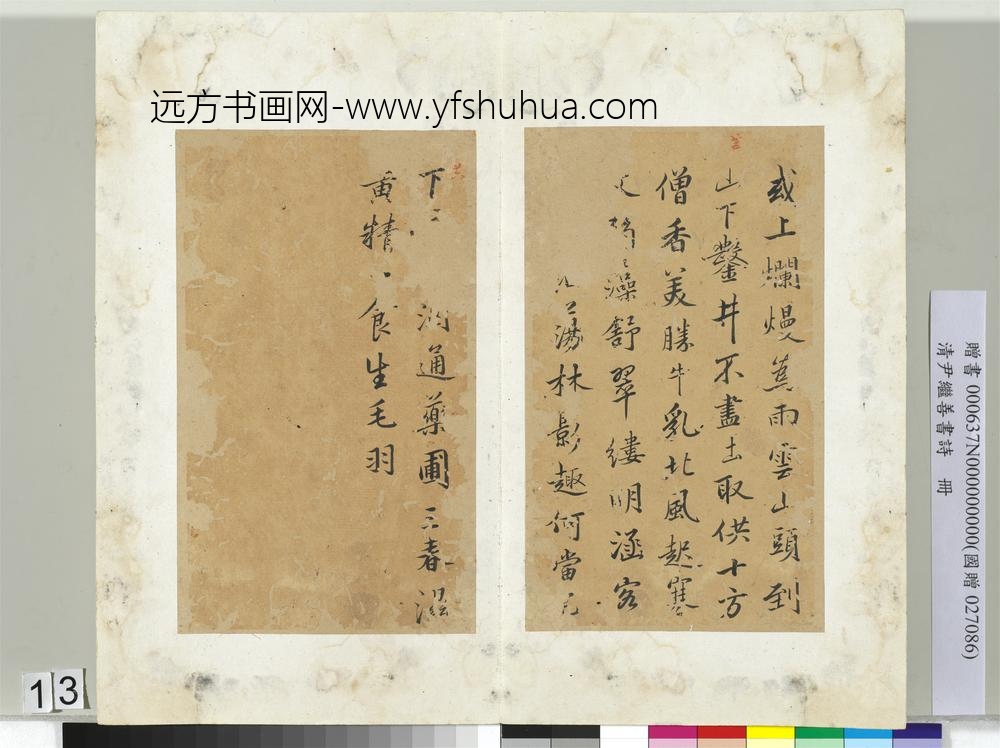 远方书画网-www.yfshuhua.com
或上爛熳雨雲山頭到
山下鑿井不盡土取供十方
僧香美勝牛乳北風起寒
藻舒翠縷明涵客
林影趣何當
下通藥圃三春濕
黃精食生毛羽
贈書 000637N000000000(國贈 027086)
清尹繼善書詩 冊
13